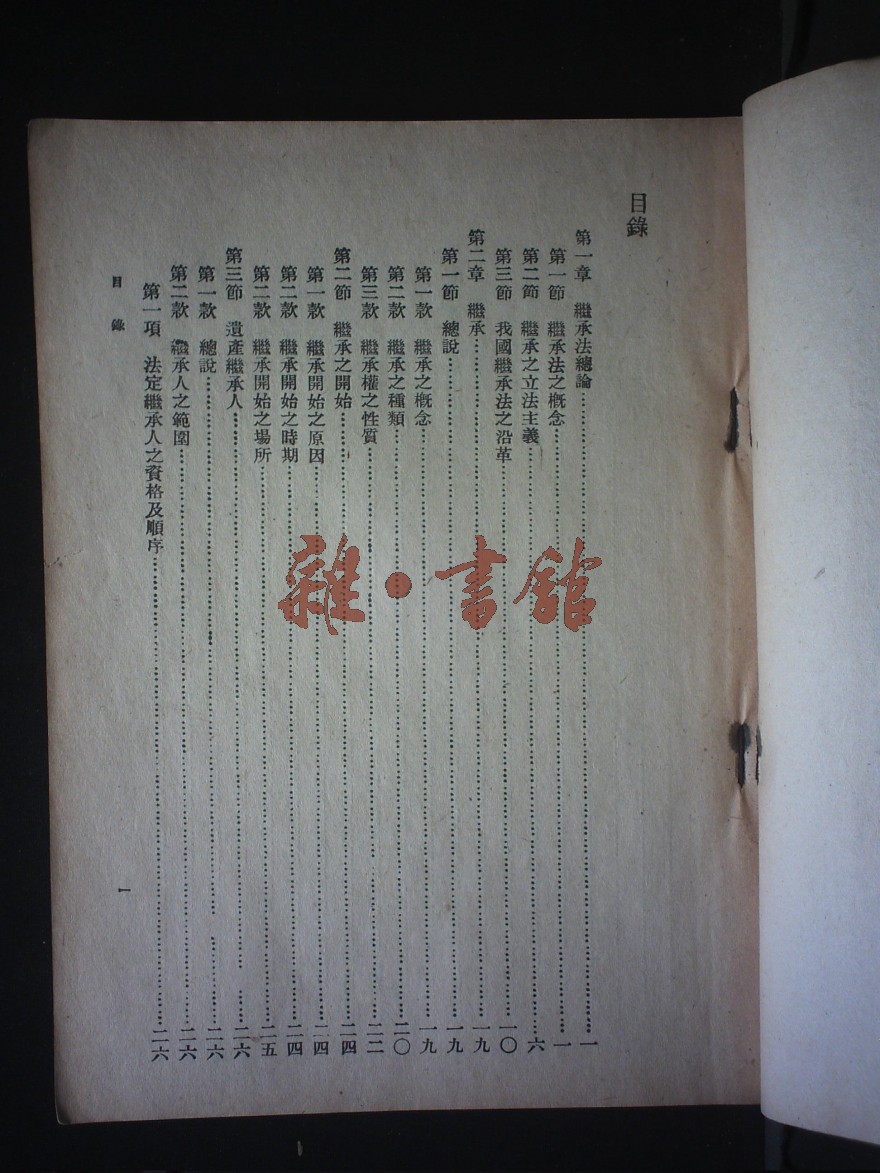 目錄
第一章 繼承法總論……一
第一節 繼承法之槪念……一
第二節 繼承之立法主義……六
第三節 我國繼承法之沿革……一〇
第二章 繼承……一九
第一節 總說……一九
第一款 繼承之槪念……一九
第二款 繼承之種類……二〇
第三款 繼承權之性質……二二
第二節 繼承之開始……二四
第一款 繼承開始之原因……二四
第二款 繼承開始之時期……二四
第二款 繼承開始之場所……二五
第三節 遺產繼承人……二六
第一款 總說……二六
第二款 繼承人之範圍……二六
第一項 法定繼承人之資格及順序……二六
目錄
一
雜·書館